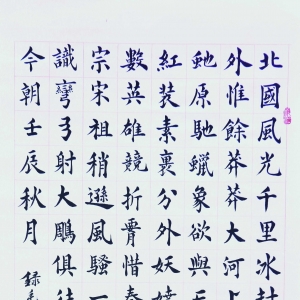 北國風光千里冰封
外惟餘莽莽大河上
虵原馳蠟象欲與
紅裝素裹分外妖嬈
數英雄競折惜秦
宗宋祖稍遜風騷一
識彎弓射大鵰俱往
今朝壬辰秋月
錄毛